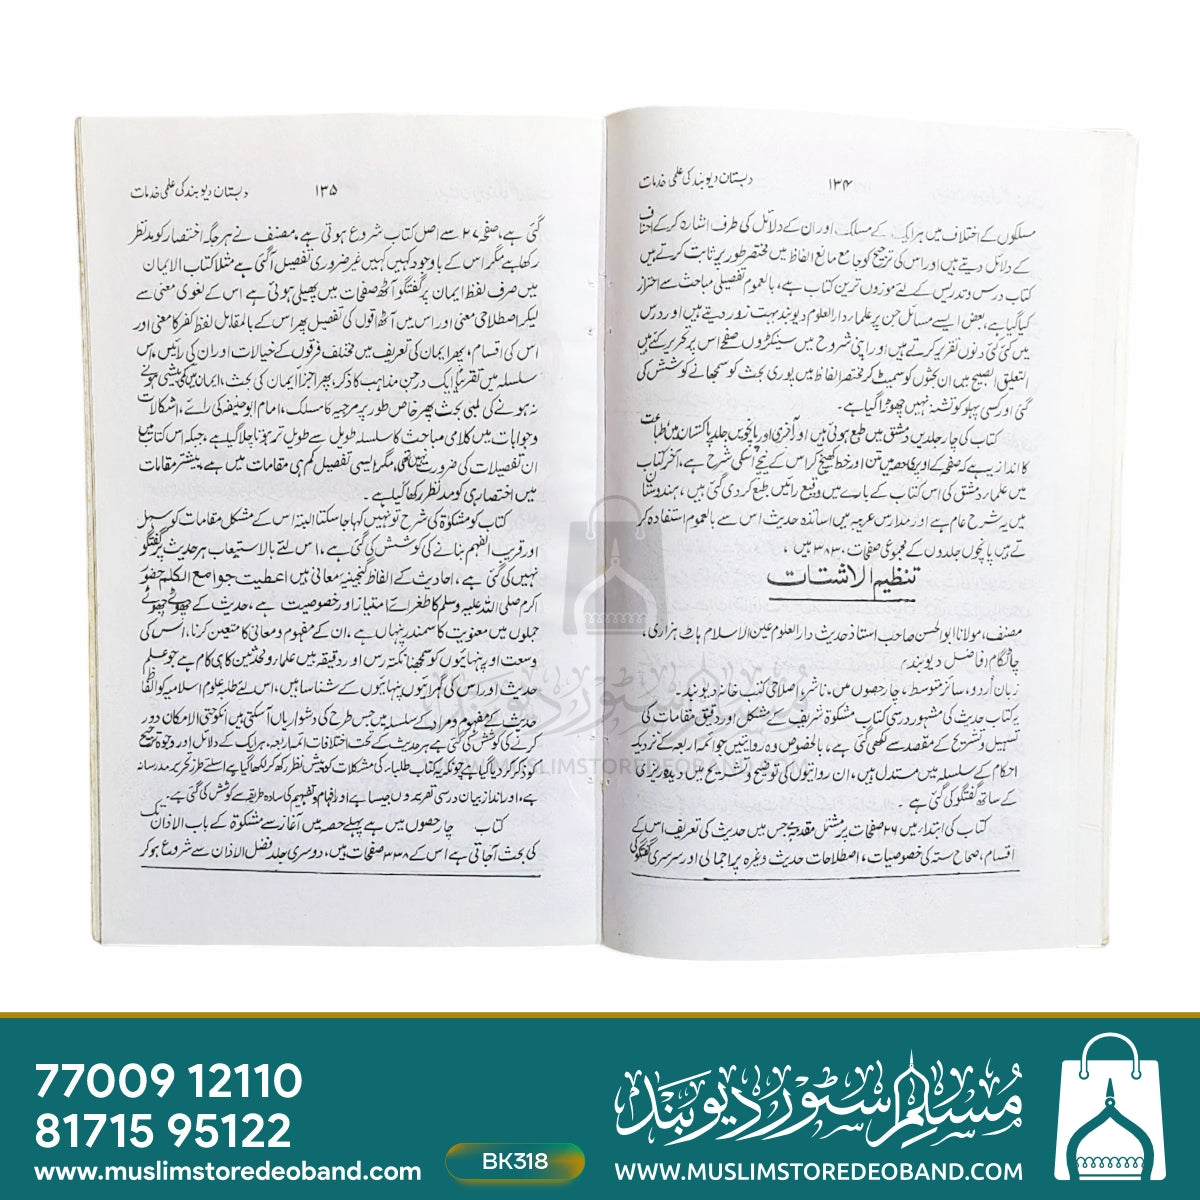 ۱۳۴ دبستان دیوبند کی علمی خدمات
مسلکوں کے اختلاف میں ہر ایک کے مسلک اور ان کے دلائل کی طرف اشارہ کر کے احناف
کے دلائل دیتے ہیں اور اس کی ترجیح کو جامع مانع الفاظ میں مختصر طور پر ثابت کرتے ہیں
کتاب درس و تدریس کے لئے موزوں ترین کتاب ہے، بالعموم تفصیلی مباحث سے احتراز
کیا گیا ہے، بعض ایسے مسائل جن پر علماء دارالعلوم دیوبند بہت زور دیتے ہیں اور درس
میں کئی کئی دنوں تقریر کرتے ہیں اور اپنی شروح میں سیکڑوں صفحے اس پر تحریر کئے ہیں
التعلیق الصبیح میں ان بحثوں کو سمیٹ کر مختصر الفاظ میں پوری بحث کو سمجھانے کو شش کی
گئی اور کسی پہلو کو تشنہ نہیں چھوڑا گیا ہے۔
کتاب کی چار جلدیں دمشق میں طبع ہوئی ہیں اور آخری اور پانچویں جلد پاکستان میں طباعت
کا انداز یہ ہے کہ صفحہ کے اوپر کا حصہ میں متن اور خط کھینچ کر اس کے نیچے اسکی شرح ہے، آخر کتاب
میں علماء دمشق کی اس کتاب کے بارے میں وقیع رائیں طبع کر دی گئی ہیں، ہندوستان
میں یہ شرح عام ہے اور مدارس عربیہ میں اساتذہ حدیث اس سے بالعموم استفادہ کر
تے ہیں پانچوں جلدوں کے مجموعی صفحات ۳۸۳۰ ہیں
تنظیم الاشتات
مصنف، مولانا ابوالحسن صاحب استاذ حدیث دارالعلوم عین الاسلام ہاٹ ہزاری،
چاٹگام (فاضل دیوبند)
زبان اُردو، سائز متوسط، چار حصوں میں، ناشر، اصلاحی کتب خانہ دیوبند۔
یہ کتاب حدیث کی مشہور درسی کتاب مشکوٰۃ شریف کے مشکل اور دقیق مقامات کی
تسہیل و تشریح کے مقصد سے لکھی گئی ہے، بالخصوص وہ روایتیں جو ائمہ اربعہ کے نزدیک
احکام کے سلسلہ میں مستدل ہیں، ان روایتوں کی توضیح و تشریح میں دیدہ ریزی
کے ساتھ گفتگو کی گئی ہے۔
کتاب کی ابتداء میں ۲۶ صفحات پر مشتمل مقدمہ ہے جس میں حدیث کی تعریف اس کے
اقسام، صحاح ستہ کی خصوصیات، اصطلاحات حدیث وغیرہ پر اجمالی اور سرسری گفتگو کی
۱۳۵ دبستان دیوبند کی علمی خدمات
گئی ہے، صفحہ ۲۷ سے اصل کتاب شروع ہوتی ہے۔ مصنف نے ہر جگہ اختصار کو مدنظر
رکھا ہے مگر اس کے باوجود کہیں کہیں غیر ضروری تفصیل آگئی ہے مثلا کتاب الایمان
میں صرف لفظ ایمان پر گفتگو آٹھ صفحات میں پھیلی ہوئی ہے اس کے لغوی معنی سے
لیکر اصطلاحی معنی اور اس میں آٹھ اقوال کی تفصیل پھر اس کے بالمقابل لفظ کفر کا معنی اور
اس کی اقسام، پھر ایمان کی تعریف میں مختلف فرقوں کے خیالات اور ان کی رائیں، اس
سلسلہ میں تقریباً ایک درجن مذاہب کا ذکر، پھر اجزاء ایمان کی بحث، ایمان میں کمی بیشی ہونے
نہ ہونے کی لمبی بحث پھر خاص طور پر مرجیہ کا مسلک، امام ابوحنیفہ کی رائے، اشکالات
و جوابات میں کلامی مباحث کا سلسلہ طویل سے طویل تر ہوتا چلا گیا ہے، جبکہ اس کتاب میں
ان تفصیلات کی ضرورت نہیں تھی، مگر ایسی تفصیل کم ہی مقامات میں ہے، بیشتر مقامات
میں اختصار ہی کو مدنظر رکھا گیا ہے۔
کتاب کو مشکوٰۃ کی شرح تو نہیں کہا جا سکتا البتہ اس کے مشکل مقامات کو سہل
اور قریب الفہم بنانے کی کوشش کی گئی ہے، اس لئے بالاستیعاب ہر حدیث پر گفتگو
نہیں کی گئی ہے، احادیث کے الفاظ گنجینیہ معانی ہیں اعطیت جوامع الکلم حضور
اکرم صلی اللہ علیہ وسلم کا طغرائے امتیاز اور خصوصیت ہے، حدیث کے چھوٹے چھوٹے
جملوں میں معنویت کا سمندر پنہاں ہے، ان کے مفہوم و معانی کا متعین کرنا، اس کی
وسعت اور پنہائیوں کو سمجھنا نکتہ رس اور دقیقہ بیں علماء و محدثین کا ہی کام ہے جو علم
حدیث اور اس کی گہرائیوں پنہائیوں کے شناسا ہیں، اس لئے طلبہ علوم اسلامیہ کو الفاظ
حدیث کے مفہوم و مراد کے سلسلہ میں جس طرح کی دشواریاں آسکتی ہیں انکو حتی الامکان دور
کرنے کی کوشش کی گئی ہے ہر حدیث کے تحت اختلافات ائمہ اربعہ، ہر ایک کے دلائل اور وجوہ ترجیح
کو ذکر کر دیا گیا ہے چونکہ یہ کتاب طلباء کی مشکلات کو پیش نظر رکھ کر لکھا گیا ہے اسلئے طرز تحریر مدرسانہ
ہے، اور انداز بیان درسی تقریروں جیسا ہے اور افہام و تفہیم کی سادہ طریقہ سے کوشش کی گئی ہے۔
کتاب چار حصوں میں ہے پہلے حصہ میں آغاز سے مشکوٰۃ کے باب الاذان تک
کی بحث آجاتی ہے اس کے ۳۳۸ صفحات ہیں، دوسری جلد فضل الاذان سے شروع ہو کر
مسلم سٹور دیوبند
WWW.MUSLIMSTOREDEOBAND.COM
77009 12110
81715 95122
www.muslimstoredeoband.com
BK318
مسلم سٹور دیوبند
WWW.MUSLIMSTOREDEOBAND.COM